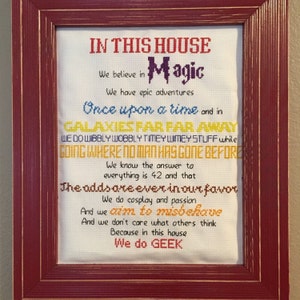 IN THIS HOUSE
We believe in Magic
We have epic adventures
Once upon a time and in
GALAXIES FAR FAR AWAY
WE DO WIBBLY WOBBLY TIMEY WIMEY STUFF while
GOING WHERE NO MAN HAS GONE BEFORE
We know the answer to
everything is 42 and that
The odds are ever in our favor
We do cosplay and passion
And we aim to misbehave
And we don't care what others think
Because in this house
We do GEEK